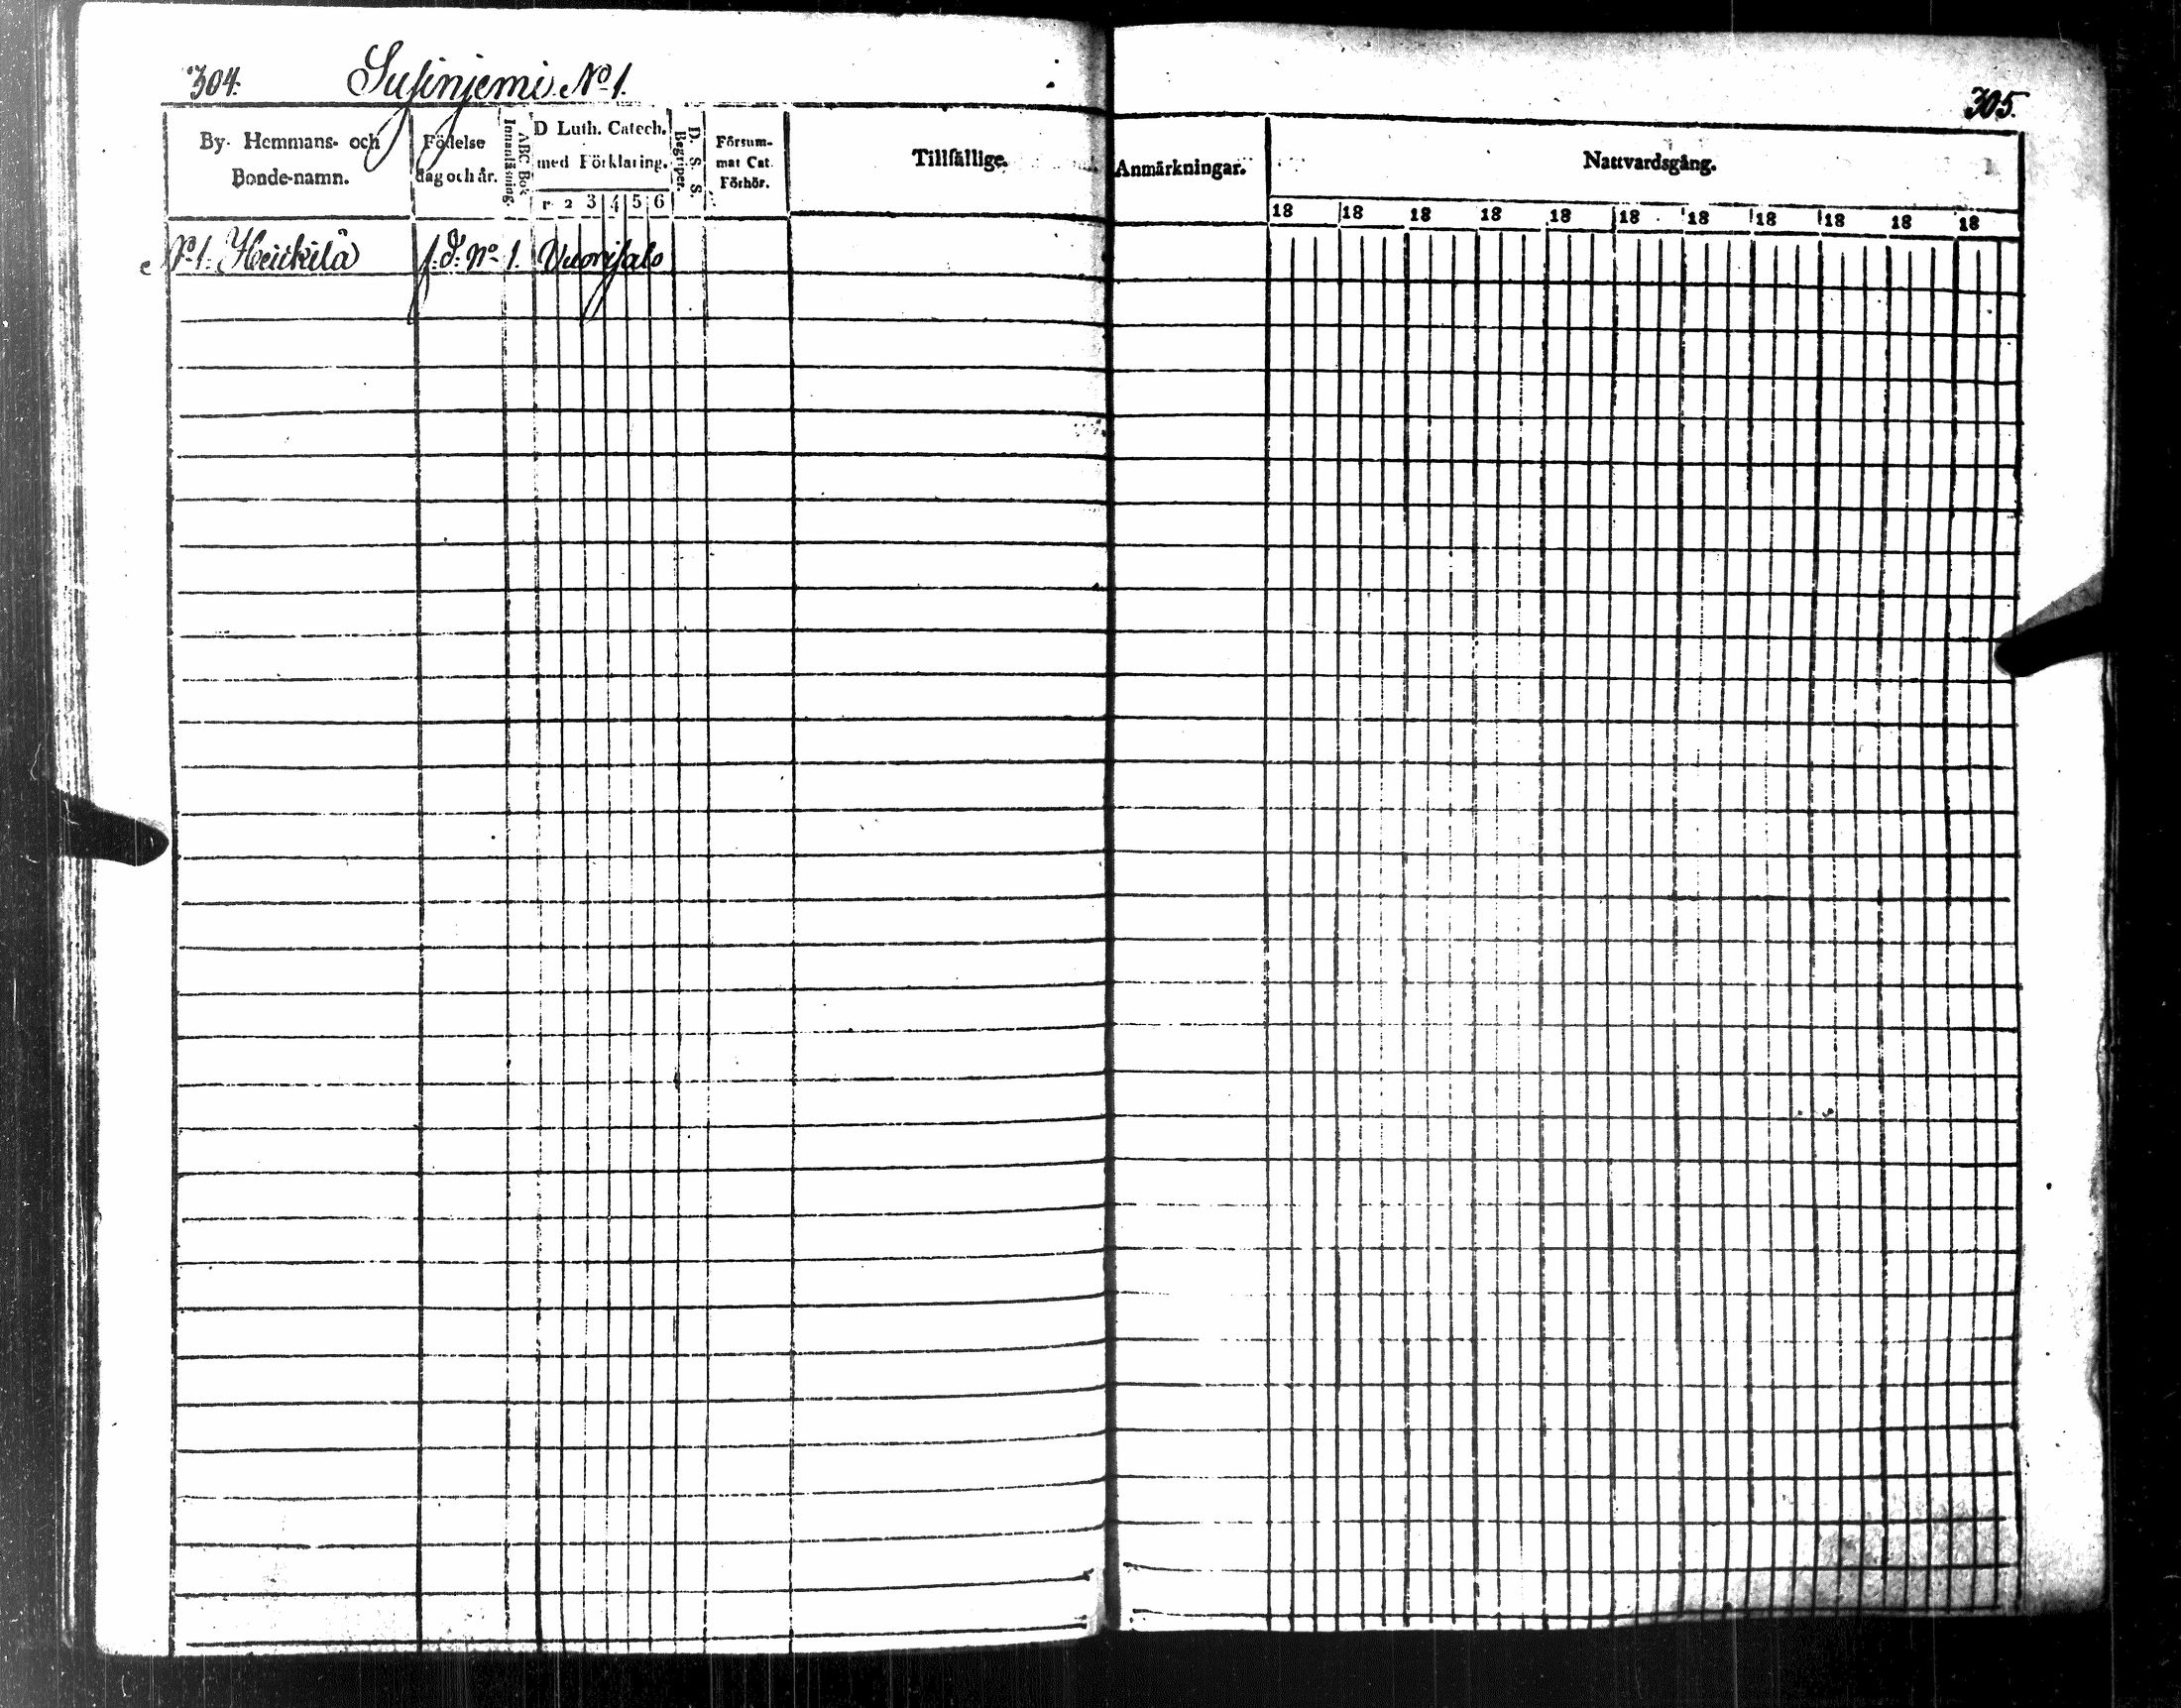 304. Susinjemi No 1.
305.
By- Hemmans- och Bonde-namn.
Födelse dag och år.
ABC Bok Innanläsning.
D Luth. Catech. med Förklaring.
1 2 3 4 5 6
D. S. S. Begriper.
Försum- mat Cat. Förhör.
Tillfällige Anmärkningar.
Nattvardsgång.
18 18 18 18 18 18 18 18 18 18 18
No 1. Heickilä No 1. Vuorisalo